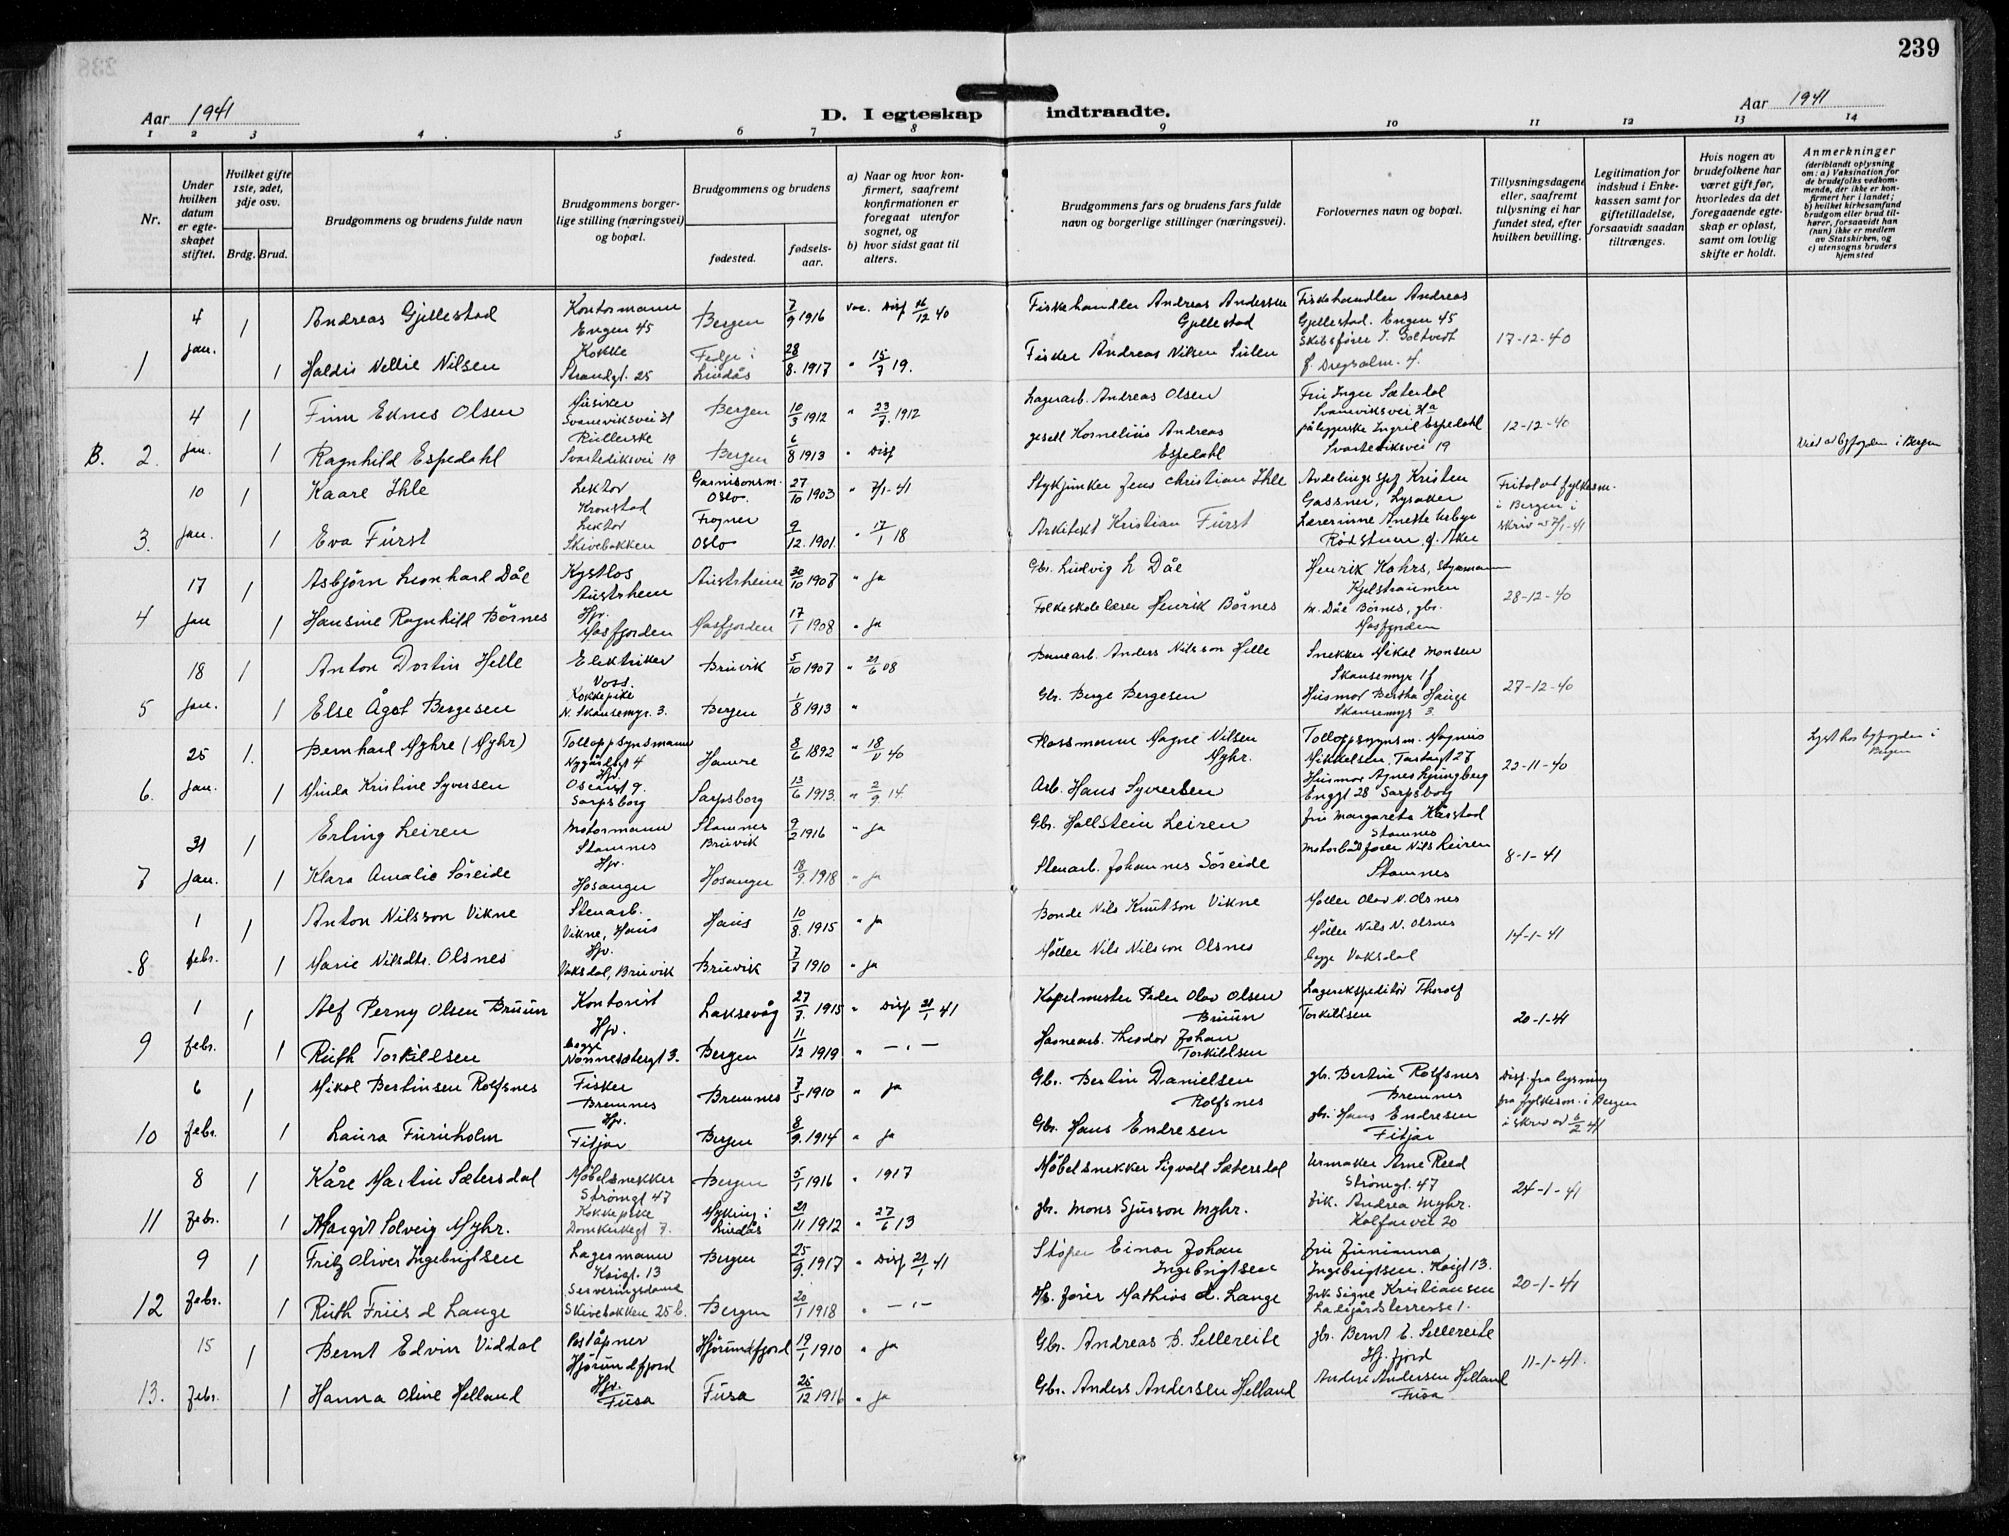 239
Aar 1941
D. I egteskap indtraadte.
Aar 1941
1 2 3 4 5 6 7 8 9 10 11 12 13 14
Nr.
Under hvilken datum er egteskapet stiftet.
Hvilket gifte 1ste, 2det, 3dje osv.
Brdg. Brud.
Brudgommens og brudens fulde navn
Brudgommens borgerlige stilling (næringsvei) og bopæl.
Brudgommens og brudens
fødested.
fødselsaar.
a) Naar og hvor konfirmert, saafremt konfirmationen er foregaat utenfor sognet, og
b) hvor sidst gaat til alters.
Brudgommens fars og brudens fars fulde navn og borgerlige stillinger (næringsvei).
Forlovernes navn og bopæl.
Tillysningsdagene eller, saafremt tillysning ei har fundet sted, efter hvilken bevilling.
Legitimation for indskud i Enkekassen samt for giftetilladelse, forsaavidt saadan tiltrænges.
Hvis nogen av brudefolkene har været gift før, hvorledes da det foregaaende egteskap er opløst, samt om lovlig skifte er holdt.
Anmerkninger
(deriblandt oplysning om: a) Vaksination for de brudefolks vedkommende, der ikke er konfirmert her i landet; b) hvilket kirkesamfund brudgom eller brud tilhører, forsaavidt han (hun) ikke er medlem av Statskirken, og c) utensogns bruders hjemsted
4 1 Andreas Gjellestad Kontormann Engen 45 Bergen 7/9 1916 vac. Disp 16/12 40 Fiskehandler Andreas Andersen Gjellestad Fiskehandler Andreas Gjellestad. Engen 45
1 jan. 1 Haldis Nellie Nilsen Kokke Strandgt. 25 Fedje i Lindås 28/8 1917 " 15/7 19. Fisker Andreas Nilsen Sulen Skibsfører J. Goltvedt 17-12-40
4 1 Finn Eknes Olsen Musiker Svaneviksvei Bergen 10/3 1912 " 23/7 1912 Lagerarb. Andreas Olsen Fru Inger Sæterdal Svaneviksvei
B. 2. jan. 1 Ragnhild Espedahl Rullerske Svartediksvei 19 Bergen 6/8 1913 " Disp gesell Kornelius Andreas Espedahl påleggerske Ingrid Espedahl Svartediksvei 19 12-12-40 Viet av byfogden i Bergen
10 1 Kaare Ihle Lektor Kronstad Garnisonsm. Oslo. 27/10 1903 " 7/1-41 Stykjunker Jens Christian Ihle Avdelings sjef Kristen Gassner, Lysaker Fritak av fylkesm. i Bergen i skriv av 7/1-41
3. jan. 1 Eva Fürst Lektor Skivebakken Frogner Oslo 9/12. 1901 " 17/1 18 Arkitekt Kristian Fürst Lærerinne Anette Urbye Rødstuen. Aker
17 1 Asbjørn Leonhard Dåe Kystlos Austrheim Austrheim 30/10 1907 " ja Gbr. Ludvig L Dåe Henrik Kahrs, styrmann Kjelstraumen
4 jan 1 Hansine Ragnhild Børnes Hjv. Masfjorden Masfjorden 17/1 1908 " ja Folkeskolelærer Henrik Børnes M. Dåe Børnes, gbr. Masfjorden 28-12-40
18 1 Anton Dortin Helle Elektriker Voss. Bruvik 5/10 1907 " 21/6 08 Banearb. Anders Nilsson Helle Snekker Mikal Monsen Skansemyr 1f
5 jan. 1 Else Ågot Bergesen Kokkepike N. Skansemyr. 3. Bergen 1/8 1913 " Gbr. Berge Bergesen Husmor Bertha Hauge Skansemyr 3. 27-12-40
25 1. Bernhard Myhre (Myhr) Tolloppsynsmann Nygårdsgt 4 Hamre 8/6 1892 " 18/11 40 Plassmann Magne Nilsen Myhr. Tolloppsynsm. Magnus Mikkelsen, Tordargt 27 Lyst hos byfogden i Bergen
6. jan. 1 Minda Kristine Syversen Hjv. Oscarsgt 9. Sarpsborg Sarpsborg 13/6 1913. " 2/9 14. Arb. Hans Syversen Husmor Agnes Ljungberg Enggt 28 Sarpsborg 22-11-40
31 1 Erling Leiren Motormann Stamnes Stamnes Bruvik 9/2 1916 " ja Gbr. Hallstein Leiren fru Margareta Kårstad Stamnes
7 jan. 1 Klara Amalie Søreide Hjv. Hosanger Hosanger 18/9. 1918 " ja Stenarb. Johannes Søreide Motorbåtfører Nils Leiren Stamnes 8-1-41
1 1 Anton Nilsson Vikne Stenarb. Vikne, Haus Haus 10/8. 1915 " ja Bonde Nils Knutson Vikne Møller Olav N. Olsnes
8 febr. 1 Marie Nilsdtr. Olsnes Hjv. Vaksdal, Bruvik Bruvik 7/7 1910 " ja Møller Nils Nilsson Olsnes Møller Nils N. Olsnes begge Vaksdal 14-1-41
1 1 Alf Perny Olsen Bruun Kontorist Laksevåg 27/7 1915 " Disp 21/1 41 Kapelmester Peder Olav Olsen Bruun Lagerekspeditør Thorolf Torkildsen
9 febr. 1 Ruth Torkildsen Hjv. begge Nonnesætergt 3. Bergen 11/12 1919 " — " — Havnearb. Theodor Johan Torkildsen 20-1-41
6 1 Mikal Bertinsen Rolfsnes Fisker Bremnes Bremnes 7/5 1910 " ja Gbr. Bertin Danielsen Rolfsnes gbr. Bertin Rolfsnes Bremnes Disp. fra lysning fra fylkesm. i Bergen i skriv av 6/2 41
10 febr. 1 Laura Furuholm Hjv. Fitjar Bergen 8/9. 1914 " ja Gbr. Hans Endresen gbr. Hans Endresen Fitjar
8 1 Kåre Martin Sætersdal Møbelsnekker Strømgt 47 Bergen 5/1 1916 " 1917 Møbelsnekker Sigvald Sætersdal Urmaker Arne Reed Strømgt. 47
11 febr. 1 Margit Solveig Myhr. Kokkepike Domkirkegt 7. Myking i Lindås 21/11 1912 " 27/6 13 gbr. Mons Sjursson Myhr. frk. Andrea Myhr. Kalfarvei 20 24-1-41
9 1 Fritz Oliver Ingebrigtsen Lagermann Kroigt. 13 Bergen 25/9. 1917 " Disp 21/1 41 Støper Einar Johan Ingebrigtsen fru Junianna Ingebrigtsen.
12 febr. 1 Ruth Friis d Lange Serveringsdame Skivebakken 25 b. Bergen 20/1 1918 " — " — fører Mathias d. Lange frk Signe Kristiansen Ladegårdsterrasse 1. 20-1-41
15 1 Bernt Edvin Viddal Poståpner Hjørundfjord Hjørundfjord 19/1 1910 " ja Gbr. Andreas B. Sellereite gbr. Bernt E. Sellereite Hj. fjord
13. febr. 1 Hanna Oline Helland Hjv. Fusa Fusa 25/12 1916 " ja Gbr. Anders Andersen Helland Anders Andersen Helland Fusa 11-1-41.